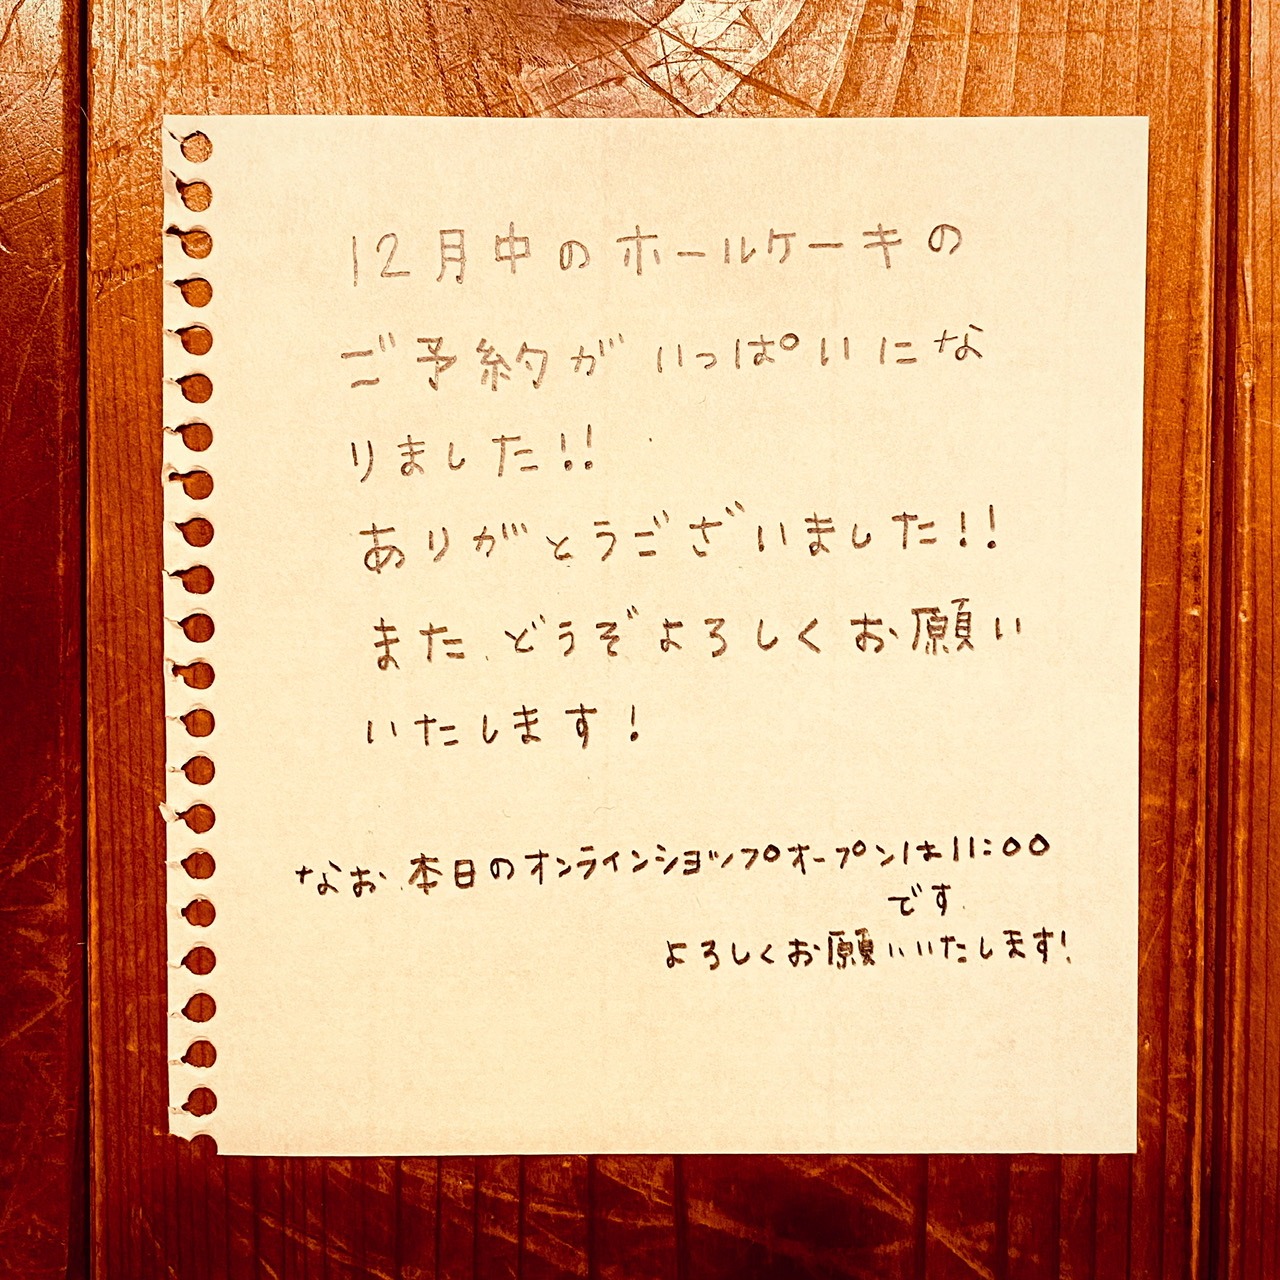 12月中のホールケーキの
ご予約がいっぱいにな
りました!!
ありがとうございました!!
また、どうぞよろしくお願い
いたします!
なお、本日のオンラインショップオープンは11:00
です.
よろしくお願いいたします!